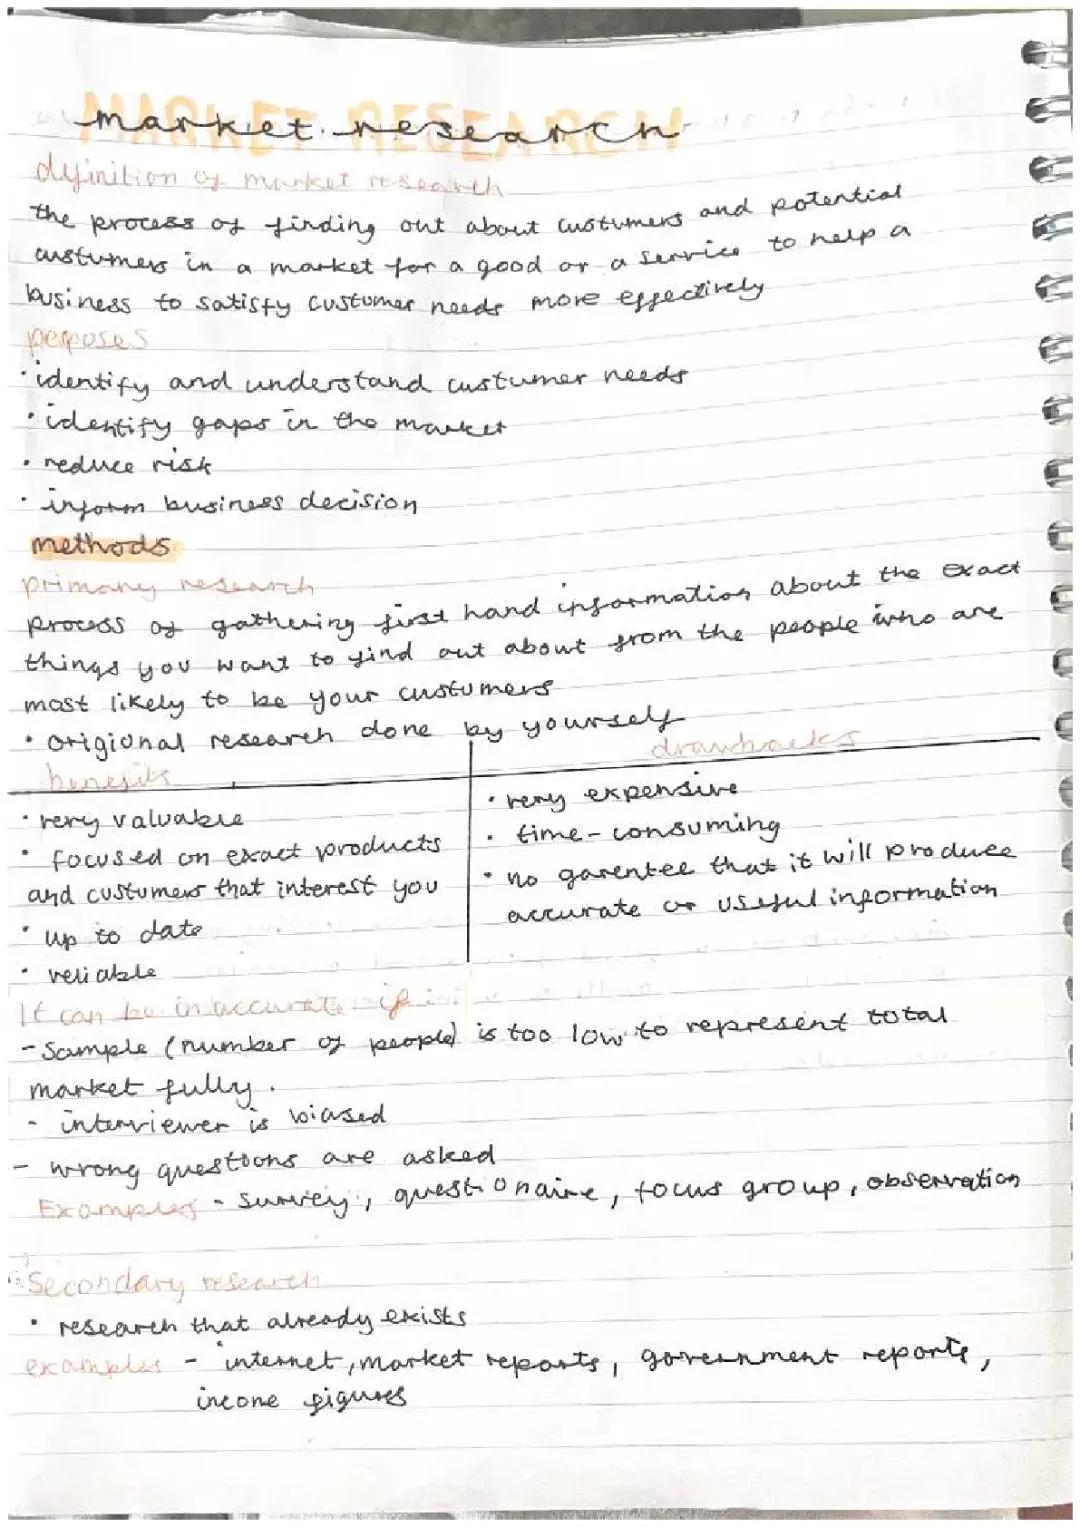 MARKET RESEARCH
market research
definition of market research
the process of finding out about custumers and potential
custumers in a market for a good or a service to help a
business to satisfy custumer needs more effectively
perposes
• identify and understand custumer needs
• identify gaps in the market
• reduce risk
• inform business decision
methods
primary research
process of gathering first hand information about the exact
things you want to find out about from the people who are
most likely to be your custumers
• origional research done by yourself
benefits
• very valuable
• focused on exact products
and custumers that interest you
• up to date
• reliable
drawbacks
• very expensive
• time-consuming
• no garentee that it will produce
accurate or useful information
It can be inaccurate if
- Sample (number of people) is too low to represent total
market fully.
- interviewer is biased
- wrong questions are asked
Examples - survey, questionaire, focus group, observation
Secondary research
• research that already exists
examples - internet, market reports, government reports,
income figures